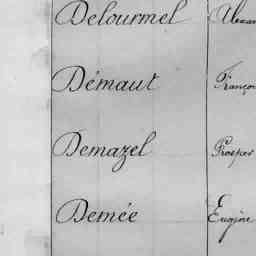 Delourmel
Démaut François
Demazel Prosper
Demée Eugène